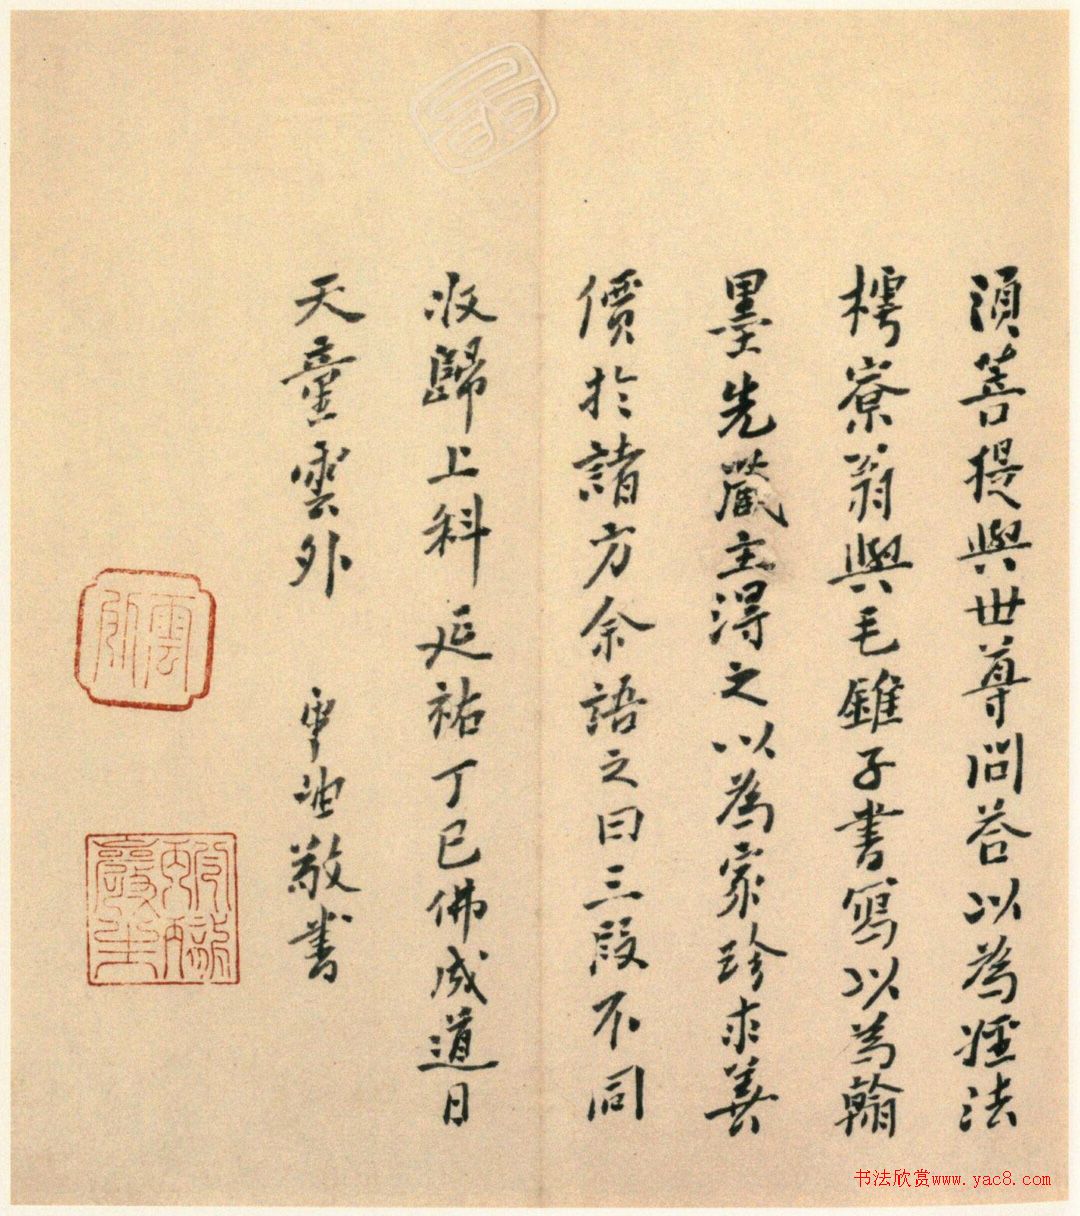 須菩提與世尊問荅以為經法
樗寮翁與毛錐子書寫以為翰
墨先藏主得之以為家珍求善
價於諸方余語之曰三段不同
收歸上科延祐丁巳佛成道日
天童雲外 雲岫敬書
书法欣赏www.yac8.com